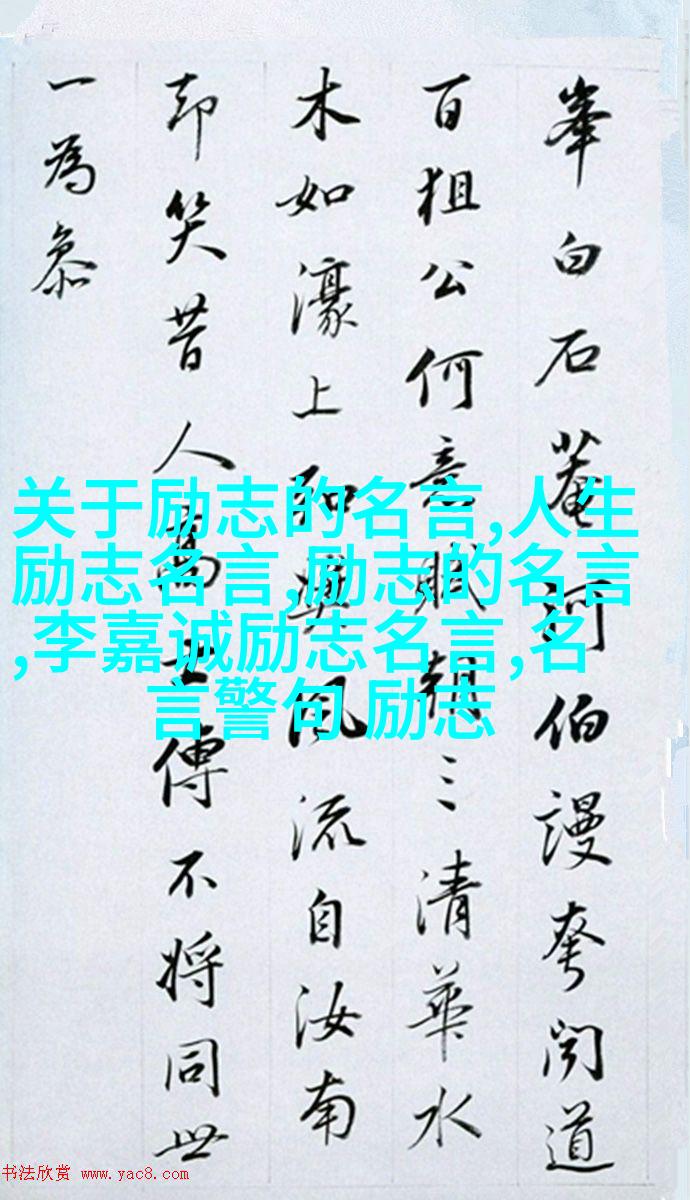 峯白石菴河伯謾夸闻道
百狙公何意賦朝三清華水
木如濠上弘奬風流自汝南
却笑昔人傳不将同世
一為叅
关于励志的名言,人生
励志名言,励志的名言
,李嘉诚励志名言,名
言警句 励志
书法欣赏 www.yac8.com